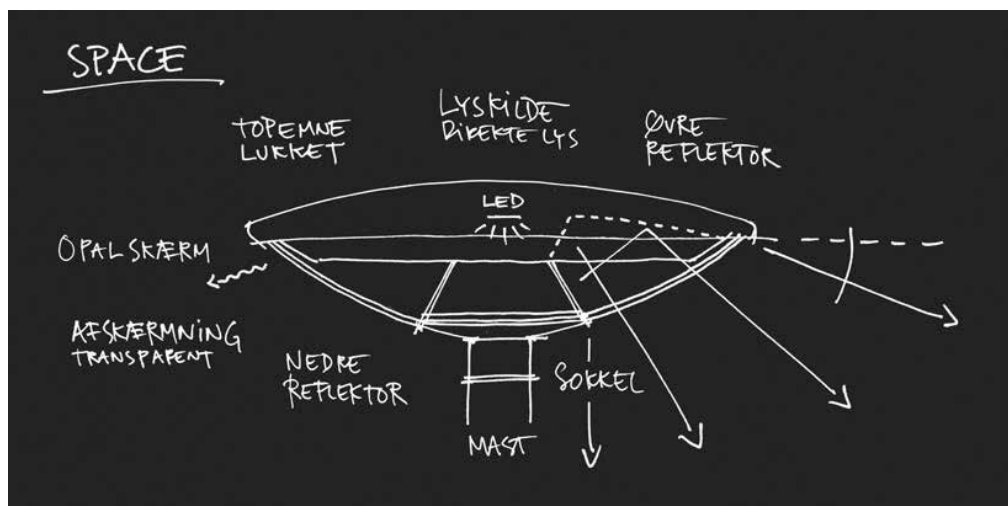 SPACE
TOPEMNE
LUKKET
LYSKILDE
DIREKTE LYS
ØVRE
REFLEKTOR
LED
OPAL SKÆRM
AFSKÆRMNING
TRANSPARENT
NEDRE
REFLEKTOR
SOKKEL
MAST